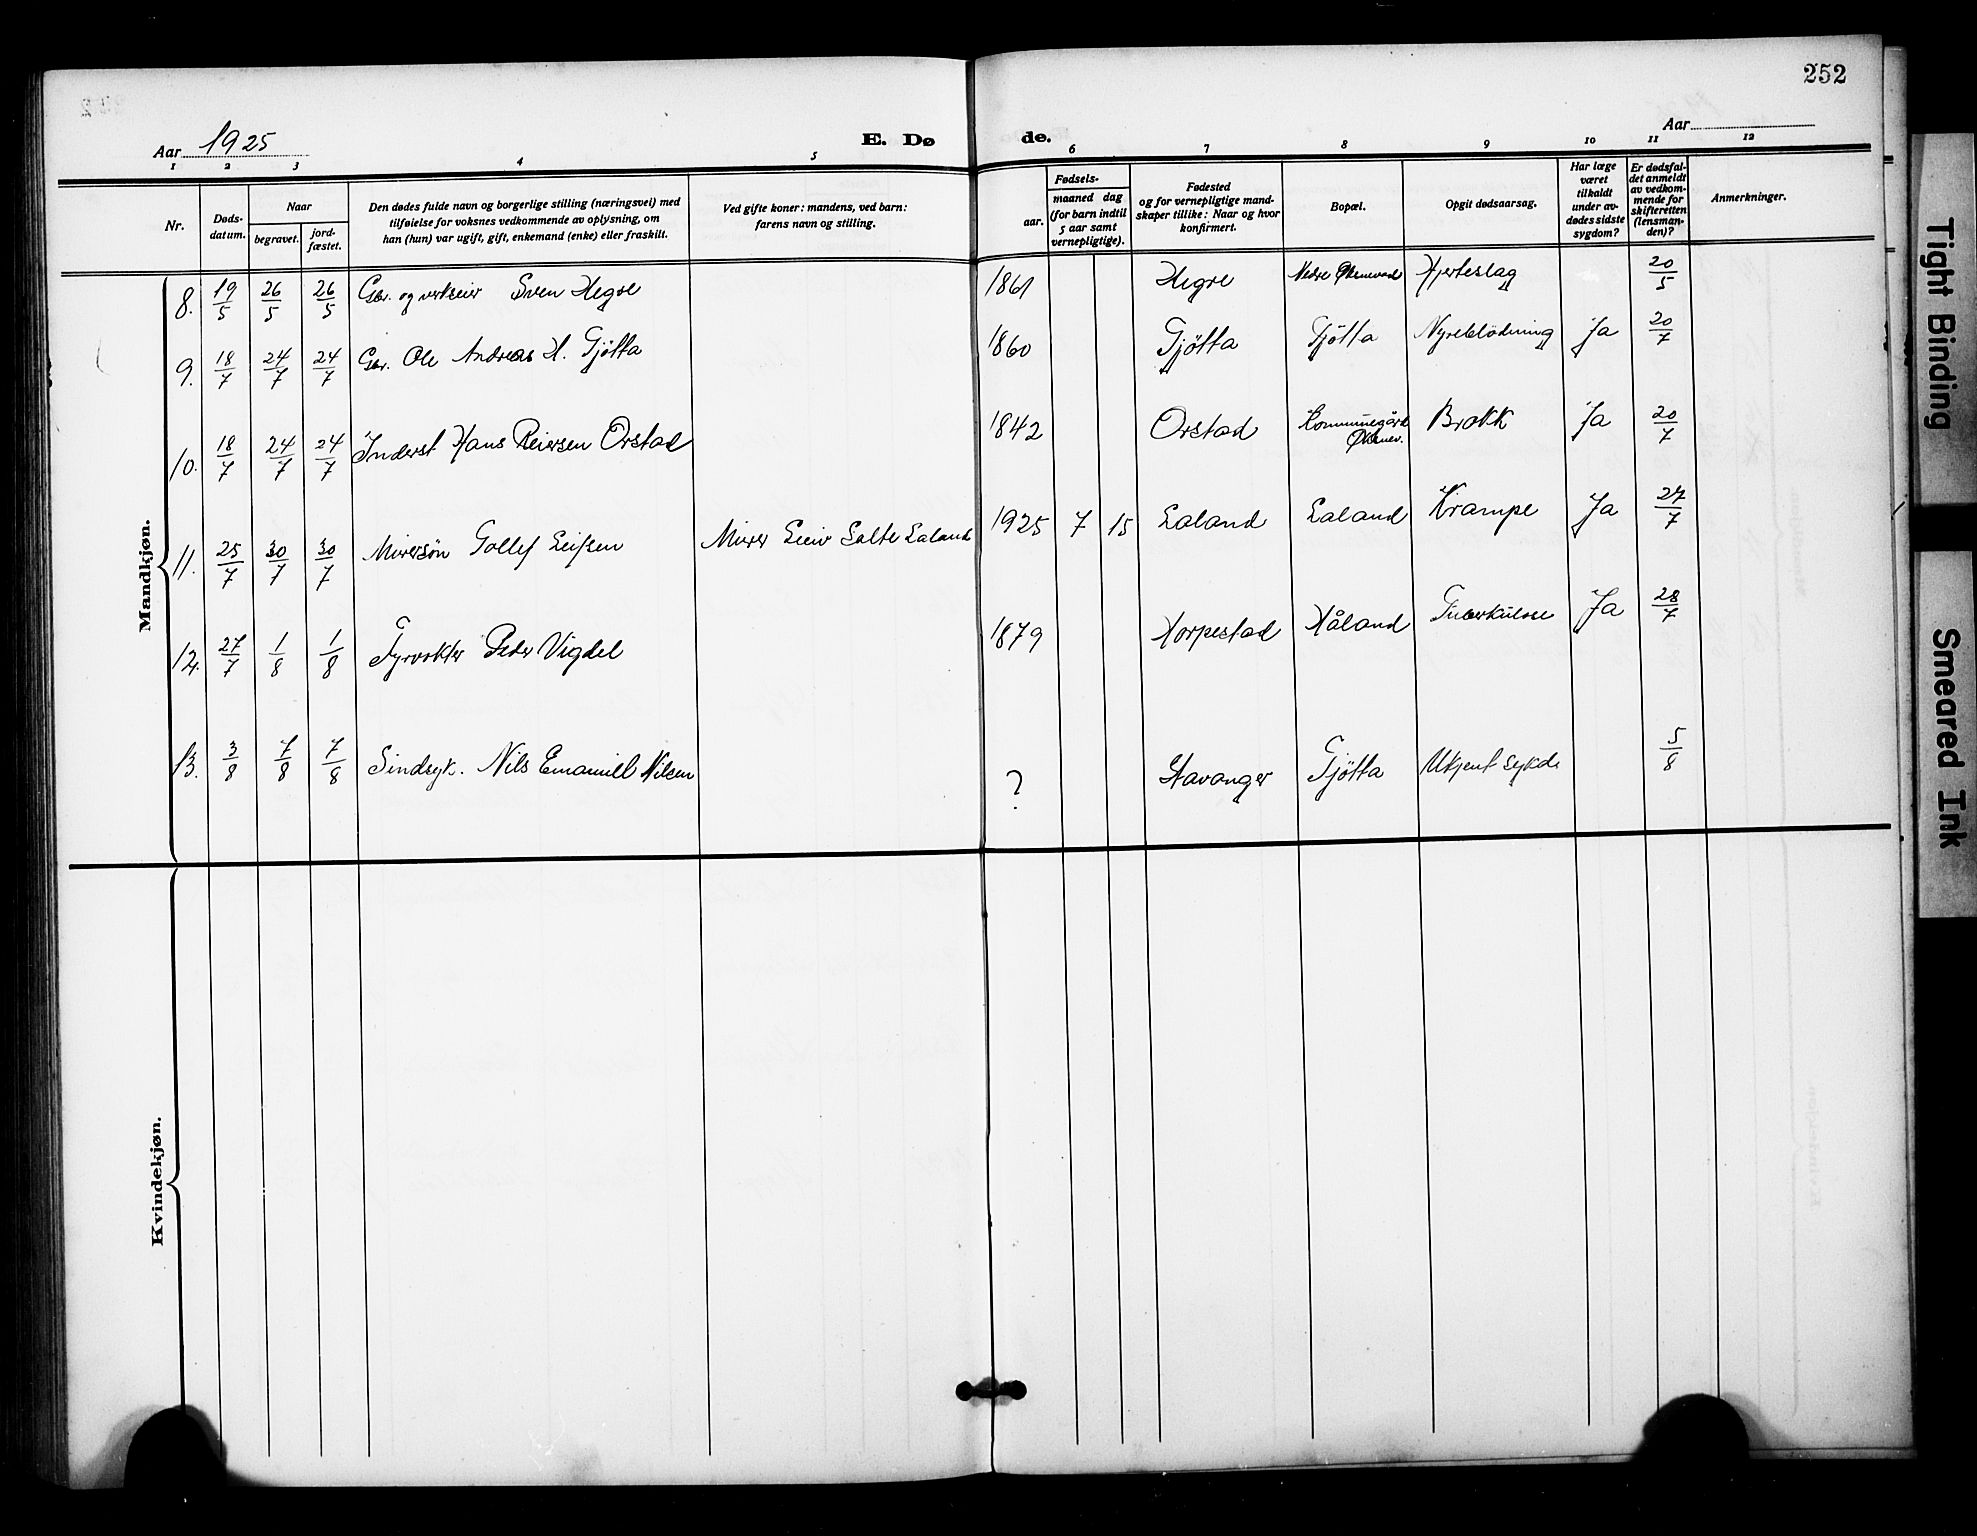 252
Aar 1925
E. Døde.
Aar
1 2 3 4 5 6 7 8 9 10 11 12
Nr.
Døds-
datum.
Naar
begravet.
jord-
fæstet.
Den dødes fulde navn og borgerlige stilling (næringsvei) med
tilføielse for voksnes vedkommende av oplysning, om
han (hun) var ugift, gift, enkemand (enke) eller fraskilt.
Ved gifte koner: mandens, ved barn:
farens navn og stilling.
Fødsels-
aar.
maaned dag
(for barn indtil
5 aar samt
vernepligtige).
Fødested
og for vernepligtige mand-
skaper tillike: Naar og hvor
konfirmert.
Bopæl.
Opgit dødsaarsag.
Har læge
været
tilkaldt
under av-
dødes sidste
sygdom?
Er dødsfal-
det anmeldt
av vedkom-
mende for
skifteretten
(lensman-
den)?
Anmerkninger.
Mandkjøn.
8. 19/5 26/5 26/5 Gbr. og verkseier Sven Hegre 1861 Hegre Nedre Øksnevad Hjerteslag 20/5
9. 18/7 24/7 24/7 Gbr. Ole Andreas H. Tjøtta 1860 Tjøtta Tjøtta Nyreblødning Ja 20/7
10. 18/7 24/7 24/7 Inderst Hans Reiersen Orstad 1842 Orstad Kommunegård Øksnev. Brokk Ja 20/7
11. 25/7 30/7 30/7 Murersøn Tollef Leifsen Murer Leiv Salte Laland 1925 7 15 Laland Laland Krampe Ja 27/7
12. 27/7 1/8 1/8 Fyrvokter Peder Vigdel 1879 Horpestad Håland Tuberkulose Ja 28/7
13. 3/8 7/8 7/8 Sindsyk. Nils Emanuel Nilsen ? Stavanger Tjøtta Ukjent sykd. 5/8
Kvindekjøn.
Tight Binding
Smeared Ink